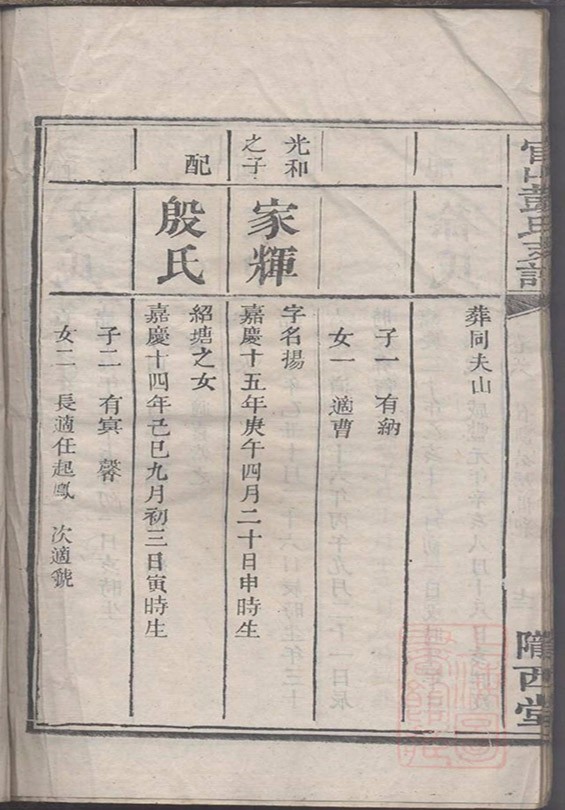 官山彭氏支譜
隴西堂
葬同夫山
子一 有納
女一 適曹
光和
之子
家輝
字名揚
嘉慶十五年庚午四月二十日申時生
配
殷氏
紹塘之女
嘉慶十四年己巳九月初三日寅時生
子二 有寅 馨
女二 長適任起鳳 次適虢